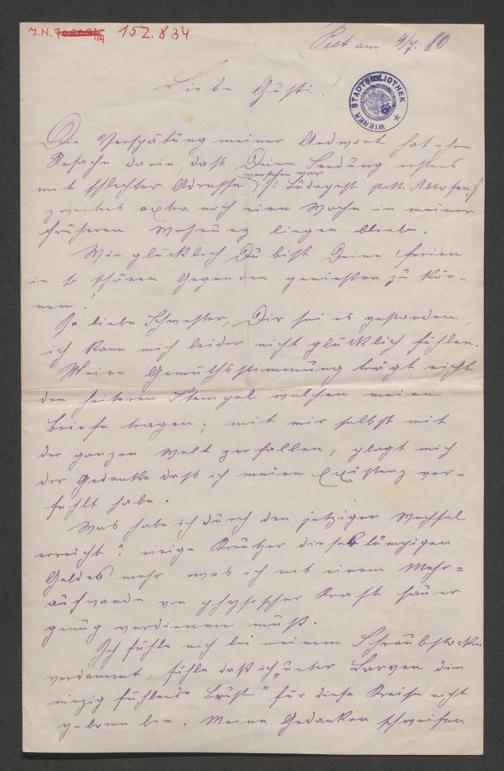 J.N. 152.834
Pest am 9/7. 80
WIENER STADTBIBLIOTHEK
Liebe Gusti!
Die Verspätung meiner Antwort hat ihre
Ursache darin, daß Deine Sendung erstens
mit schlechter Adresse versehen war /: Budapest statt Altofen :/
zweitens extra noch eine Woche in meiner
früheren Wohnung liegen blieb.
Wie glücklich Du bist Deine Ferien
in so schönen Gegenden genießen zu kön-
nen!
Ja liebe Schwester, Dir sei es gestanden,
ich kann mich leider nicht glücklich fühlen.
Meine Gemüthsstimmung trägt nicht
den heiteren Stempel welchen meine
Briefe tragen; mit mir selbst mit
der ganzen Welt zerfallen, plagt mich
der Gedanke daß ich meine Existenz ver-
fehlt habe.
Was habe ich durch den jetzigen Wechsel
erreicht? einige Kreutzer dieses lumpigen
Geldes mehr was ich mit einem Mehr-
aufwande von physischer Kraft sauer
genug verdienen muß.
Ich fühle mich bei meinem Schraubstocke
verdammt, fühle daß ich „unter Larven die
einzig fühlende Brust" für diese Kreise nicht
geboren bin. Meine Gedanken schweifen